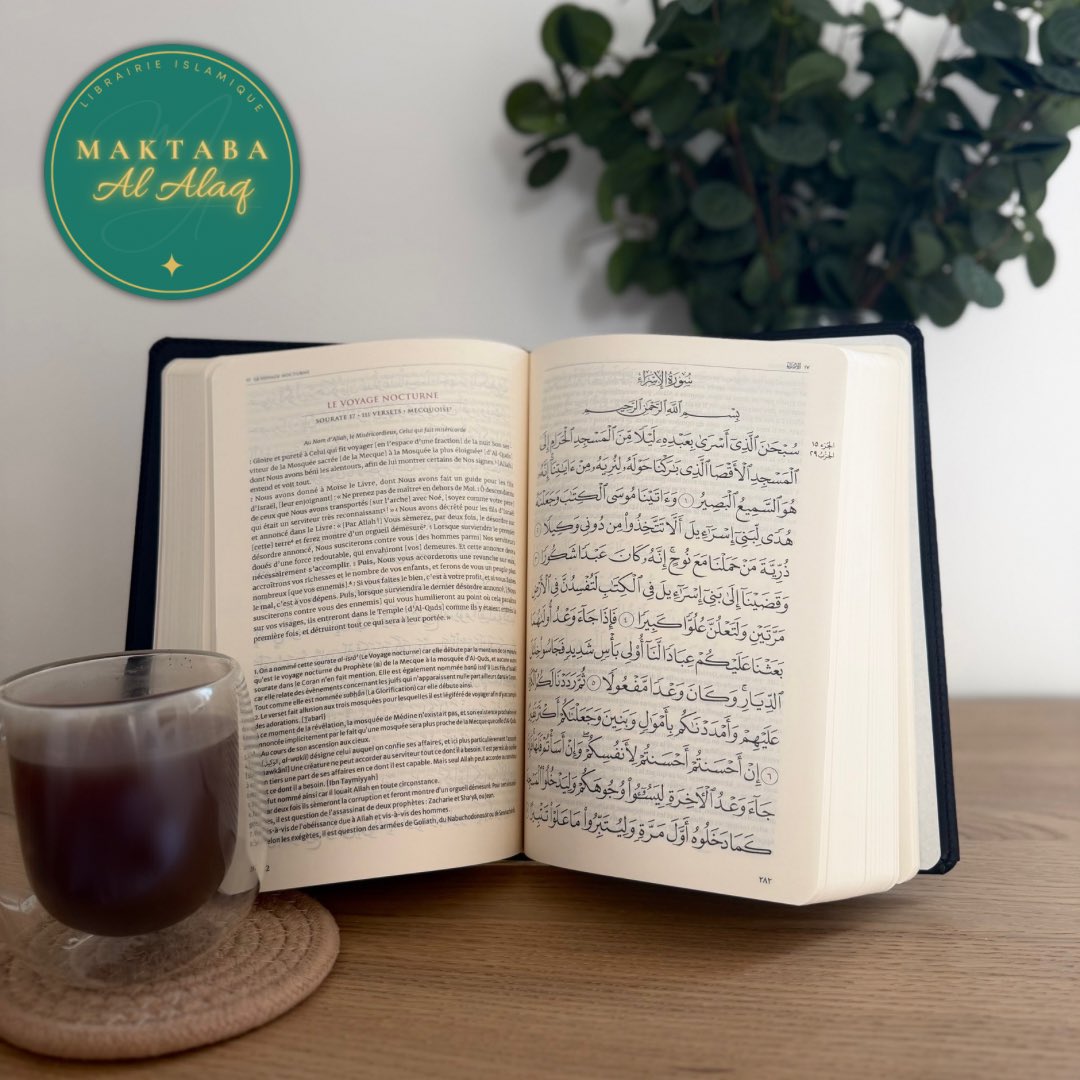 LIBRAIRIE ISLAMIQUE
MAKTABA
Al Alaq
LE VOYAGE NOCTURNE
LE VOYAGE NOCTURNE
SOURATE 17 • 111 VERSETS • MECQUOISE¹
Au Nom d'Allah, le Miséricordieux, Celui qui fait miséricorde
1 Gloire et pureté à Celui qui fit voyager [en l'espace d'une fraction] de la nuit Son ser-
viteur de la Mosquée sacrée [de la Mecque] à la Mosquée la plus éloignée² [d'Al-Quds]
dont Nous avons béni les alentours, afin de lui montrer certains de Nos signes.³ [Allah]
entend et voit tout.
2 Nous avons donné à Moïse le Livre, dont Nous avons fait un guide pour les fils
d'Israël, [leur enjoignant] : « Ne prenez pas de maître⁴ en dehors de Moi. 3 Ô descendants
de ceux que Nous avons transportés [sur l'arche] avec Noé, [soyez comme votre père]
qui était un serviteur très reconnaissant⁵ ! » 4 Nous avons décrété pour les fils d'Israël
et annoncé dans le Livre : « [Par Allah !] Vous sèmerez, par deux fois, le désordre sur
[cette] terre⁶ et ferez montre d'un orgueil démesuré⁷. 5 Lorsque surviendra le premier
désordre annoncé, Nous susciterons contre vous [des hommes parmi] Nos serviteurs
doués d'une force redoutable, qui envahiront [vos] demeures. Et cette annonce devra
nécessairement s'accomplir. 6 Puis, Nous vous accorderons une revanche sur eux,
accroîtrons vos richesses et le nombre de vos enfants, et ferons de vous un peuple plus
nombreux [que vos ennemis].⁸ 7 Si vous faites le bien, c'est à votre profit, et si vous faites
le mal, c'est à vos dépens. Puis, lorsque surviendra le dernier désordre annoncé [Nous
susciterons contre vous des ennemis] qui vous humilieront au point où cela paraîtra
sur vos visages, ils entreront dans le Temple [d'Al-Quds] comme ils y étaient entrés la
première fois, et détruiront tout ce qui sera à leur portée. »
1. On a nommé cette sourate al-isrâ' (Le Voyage nocturne) car elle débute par la mention de ce
qu'est le voyage nocturne du Prophète (ﷺ) de la Mecque à la mosquée d'Al-Quds, et aucune autre
sourate dans le Coran n'en fait mention. Elle est également nommée banû isrâ'îl (Les fils d'Israël)
car elle relate des évènements concernant les juifs qui n'apparaissent nulle part ailleurs dans le Coran.
Tout comme elle est nommée subhân (La Glorification) car elle débute ainsi.
2. Le verset fait allusion aux trois mosquées pour lesquelles il est légiféré de voyager afin d'y accomplir
des adorations. [Tabarî]
ce moment de la révélation, la mosquée de Médine n'existait pas, et son existence prochaine
annoncée implicitement par le fait qu'une mosquée sera plus proche de la Mecque qu'elle (Al-Quds).
Au cours de son ascension aux cieux.
(الوكيل, al-wakîl) désigne celui auquel on confie ses affaires, et ici plus particulièrement
[Shawkânî] Une créature ne peut accorder au serviteur tout ce dont il a besoin. Il est permis de confier
un tiers une part de ses affaires en ce dont il est capable. Mais seul Allah peut accorder au serviteur
ce dont il a besoin. [Ibn Taymiyyah]
fut nommé ainsi car il louait Allah en toute circonstance.
par deux fois ils sèmeront la corruption et feront montre d'un orgueil démesuré. Pour certains
il est question de l'assassinat de deux prophètes : Zacharie et Sha'yâ, ou Jean.
vis-à-vis de l'obéissance due à Allah et vis-à-vis des hommes.
selon les exégètes, il est question des armées de Goliath, du Nabuchodonosor ou de Sennachérib
2
١٧
سُورَةُ الإِسْرَاءِ
بِسْمِ اللَّهِ الرَّحْمَٰنِ الرَّحِيمِ
سُبْحَٰنَ ٱلَّذِىٓ أَسْرَىٰ بِعَبْدِهِۦ لَيْلًا مِّنَ ٱلْمَسْجِدِ ٱلْحَرَامِ إِلَى
ٱلْمَسْجِدِ ٱلْأَقْصَا ٱلَّذِى بَٰرَكْنَا حَوْلَهُۥ لِنُرِيَهُۥ مِنْ ءَايَٰتِنَآ إِنَّهُۥ
هُوَ ٱلسَّمِيعُ ٱلْبَصِيرُ ١ وَءَاتَيْنَا مُوسَى ٱلْكِتَٰبَ وَجَعَلْنَٰهُ
هُدًى لِّبَنِىٓ إِسْرَٰٓءِيلَ أَلَّا تَتَّخِذُوا۟ مِن دُونِى وَكِيلًا ٢
ذُرِّيَّةَ مَنْ حَمَلْنَا مَعَ نُوحٍ إِنَّهُۥ كَانَ عَبْدًا شَكُورًا ٣
وَقَضَيْنَآ إِلَىٰ بَنِىٓ إِسْرَٰٓءِيلَ فِى ٱلْكِتَٰبِ لَتُفْسِدُنَّ فِى ٱلْأَرْضِ
مَرَّتَيْنِ وَلَتَعْلُنَّ عُلُوًّا كَبِيرًا ٤ فَإِذَا جَآءَ وَعْدُ أُولَىٰهُمَا
بَعَثْنَا عَلَيْكُمْ عِبَادًا لَّنَآ أُو۟لِى بَأْسٍ شَدِيدٍ فَجَاسُوا۟ خِلَٰلَ
ٱلدِّيَارِ وَكَانَ وَعْدًا مَّفْعُولًا ٥ ثُمَّ رَدَدْنَا لَكُمُ
عَلَيْهِمْ وَأَمْدَدْنَٰكُم بِأَمْوَٰلٍ وَبَنِينَ وَجَعَلْنَٰكُمْ أَكْثَرَ
٦ إِنْ أَحْسَنتُمْ أَحْسَنتُمْ لِأَنفُسِكُمْ وَإِنْ أَسَأْتُمْ فَلَهَا
جَآءَ وَعْدُ ٱلْءَاخِرَةِ لِيَسُۥٓـُٔوا۟ وُجُوهَكُمْ وَلِيَدْخُلُوا۟
كَمَا دَخَلُوهُ أَوَّلَ مَرَّةٍ وَلِيُتَبِّرُوا۟ مَا عَلَوْا۟ تَتْبِيرًا
الجزء ١٥
الحزب ٢٩
٢٨٢